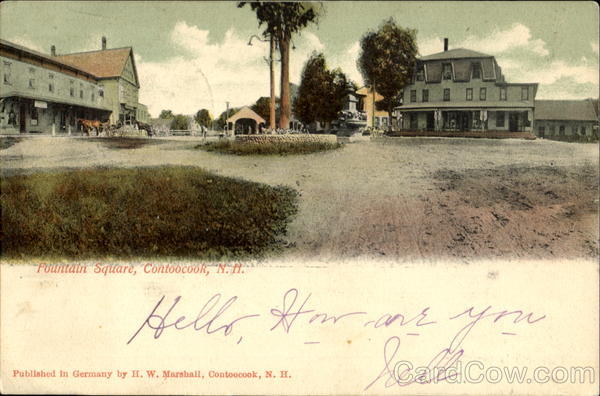 Fountain Square, Contoocook, N. H.
Hello, How are you
Published in Germany by H. W. Marshall, Contoocook, N. H.
CardCow.com